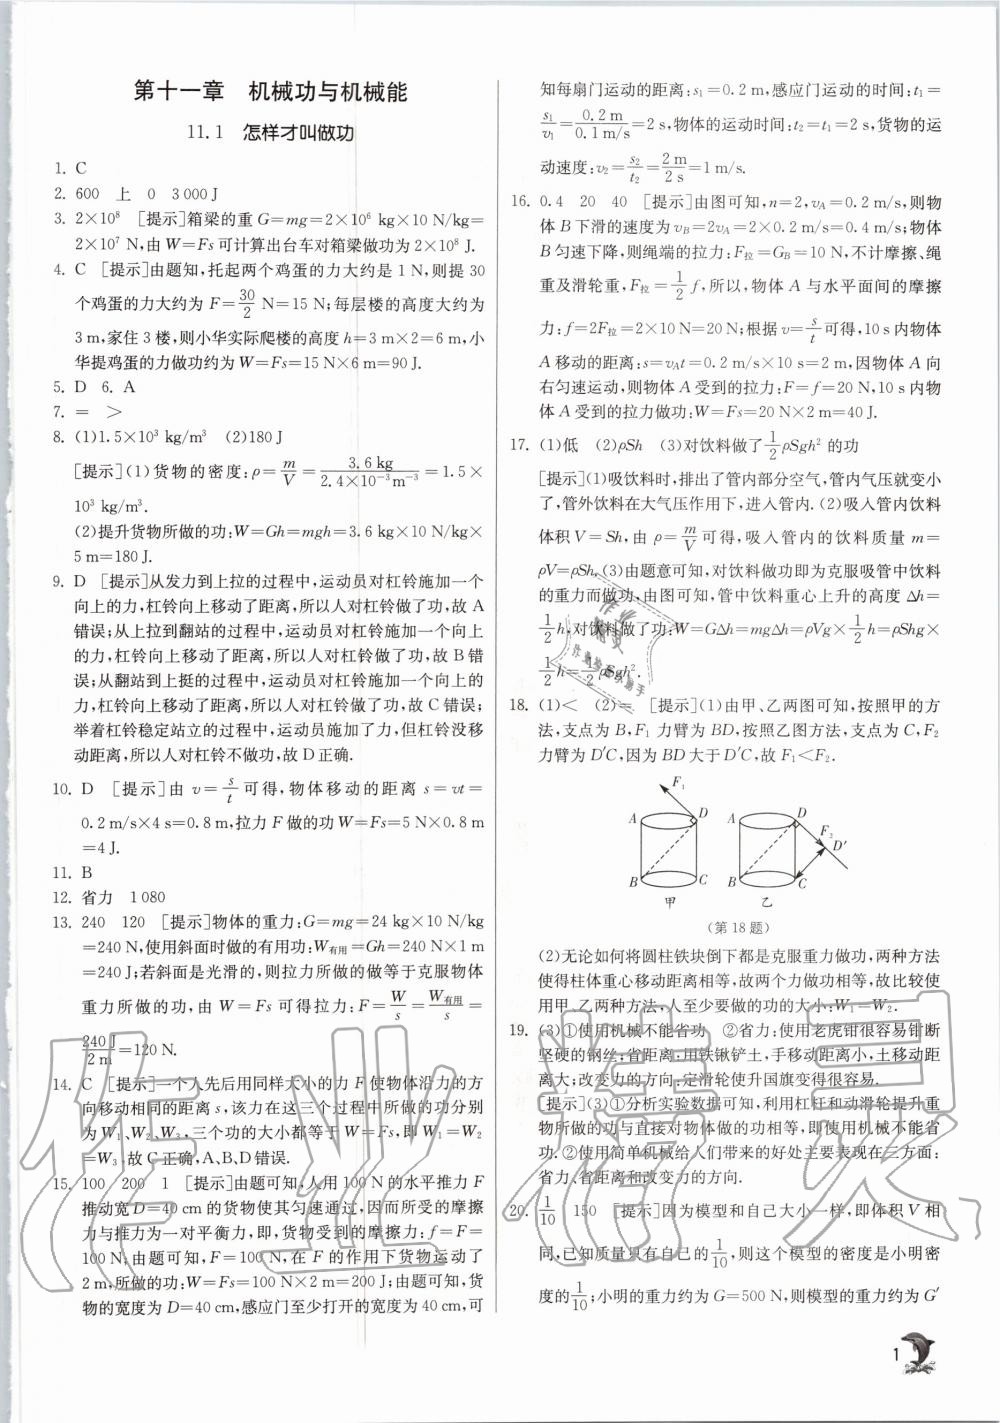 第十一章 机械功与机械能
11.1 怎样才叫做功
1. C
2. 600 上 0 3000 J
3. 2×10⁸ [提示]箱梁的重G=mg=2×10⁶ kg×10 N/kg=
2×10⁷ N,由W=Fs可计算出台车对箱梁做功为2×10⁸ J.
4. C [提示]由题知,托起两个鸡蛋的力大约是1 N,则提30
个鸡蛋的力大约为F=30/2 N=15 N;每层楼的高度大约为
3 m,家住3楼,则小华实际爬楼的高度h=3 m×2=6 m,小
华提鸡蛋的力做功约为W=Fs=15 N×6 m=90 J.
5. D 6. A
7. = >
8. (1)1.5×10³ kg/m³ (2)180 J
[提示](1)货物的密度:ρ=m/V=3.6 kg/2.4×10⁻³m⁻³=1.5×
10³ kg/m³.
(2)提升货物所做的功:W=Gh=mgh=3.6 kg×10 N/kg×
5 m=180 J.
9. D [提示]从发力到上拉的过程中,运动员对杠铃施加一个
向上的力,杠铃向上移动了距离,所以人对杠铃做了功,故A
错误;从上拉到翻站的过程中,运动员对杠铃施加一个向上
的力,杠铃向上移动了距离,所以人对杠铃做了功,故B错
误;从翻站到上挺的过程中,运动员对杠铃施加一个向上的
力,杠铃向上移动了距离,所以人对杠铃做了功,故C错误;
举着杠铃稳定站立的过程中,运动员施加了力,但杠铃没移
动距离,所以人对杠铃不做功,故D正确.
10. D [提示]由v=s/t可得,物体移动的距离s=vt=
0.2 m/s×4 s=0.8 m,拉力F做的功W=Fs=5 N×0.8 m
=4 J.
11. B
12. 省力 1080
13. 240 120 [提示]物体的重力:G=mg=24 kg×10 N/kg
=240 N,使用斜面时做的有用功:W有用=Gh=240 N×1 m
=240 J;若斜面是光滑的,则拉力所做的做等于克服物体
重力所做的功,由W=Fs可得拉力:F=W/s=W有用/s=
240 J/2 m=120 N.
14. C [提示]一个人先后用同样大小的力F使物体沿力的方
向移动相同的距离s,该力在这三个过程中所做的功分别
为W₁、W₂、W₃,三个功的大小都等于W=Fs,即W₁=W₂
=W₃.故C正确,A、B、D错误.
15. 100 200 1 [提示]由题可知,人用100 N的水平推力F
推动宽D=40 cm的货物使其匀速通过,因而所受的摩擦
力与推力为一对平衡力,即,货物受到的摩擦力:f=F=
100 N;由题可知,F=100 N,在F的作用下货物运动了
2 m,所做的功:W=Fs=100 N×2 m=200 J;由题可知,货
物的宽度为D=40 cm,感应门至少打开的宽度为40 cm,可
知每扇门运动的距离:s₁=0.2 m,感应门运动的时间:t₁=
s₁/v₁=0.2 m/0.1 m/s=2 s,物体的运动时间:t₂=t₁=2 s,货物的运
动速度:v₂=s₂/t₂=2 m/2 s=1 m/s.
16. 0.4 20 40 [提示]由图可知,n=2,vA=0.2 m/s,则物
体B下滑的速度为vB=2vA=2×0.2 m/s=0.4 m/s;物体
B匀速下降,则绳端的拉力:F拉=GB=10 N,不计摩擦、绳
重及滑轮重,F拉=1/2 f,所以,物体A与水平面间的摩擦
力:f=2F拉=2×10 N=20 N;根据v=s/t可得,10 s内物体
A移动的距离:s=vAt=0.2 m/s×10 s=2 m,因物体A向
右匀速运动,则物体A受到的拉力:F=f=20 N,10 s内物
体A受到的拉力做功:W=Fs=20 N×2 m=40 J.
17. (1)低 (2)ρSh (3)对饮料做了1/2 ρSgh²的功
[提示](1)吸饮料时,排出了管内部分空气,管内气压就变小
了,管外饮料在大气压作用下,进入管内.(2)吸入管内饮料
体积V=Sh,由ρ=m/V可得,吸入管内的饮料质量m=
ρV=ρSh.(3)由题意可知,对饮料做功即为克服吸管中饮料
的重力而做功,由图可知,管中饮料重心上升的高度Δh=
1/2 h,对饮料做了功:W=GΔh=mgΔh=ρVg×1/2 h=ρShg×
1/2 h=1/2 ρSgh².
18. (1)< (2)= [提示](1)由甲、乙两图可知,按照甲的方
法,支点为B,F₁力臂为BD,按照乙图方法,支点为C,F₂
力臂为D′C,因为BD大于D′C,故F₁<F₂.
F₁
A D A D F₂ D′
B C B C
甲 乙
(第18题)
(2)无论如何将圆柱铁块倒下都是克服重力做功,两种方法
使得柱体重心移动距离相等,故两个力做功相等,故比较使
用甲、乙两种方法,人至少要做的功的大小:W₁=W₂.
19. (3)①使用机械不能省功 ②省力:使用老虎钳很容易钳断
坚硬的钢丝;省距离:用铁锹铲土,手移动距离小,土移动距
离大;改变力的方向:定滑轮使升国旗变得很容易.
[提示](3)①分析实验数据可知,利用杠杆和动滑轮提升重
物所做的功与直接对物体做的功相等,即使用机械不能省
功.②使用简单机械给人们带来的好处主要表现在三方面:
省力、省距离和改变力的方向.
20. 1/10 150 [提示]因为模型和自己大小一样,即体积V相
同,已知质量只有自己的1/10,则这个模型的密度是小明密
度的1/10;小明的重力约为G=500 N,则模型的重力约为G′
1
作业精灵